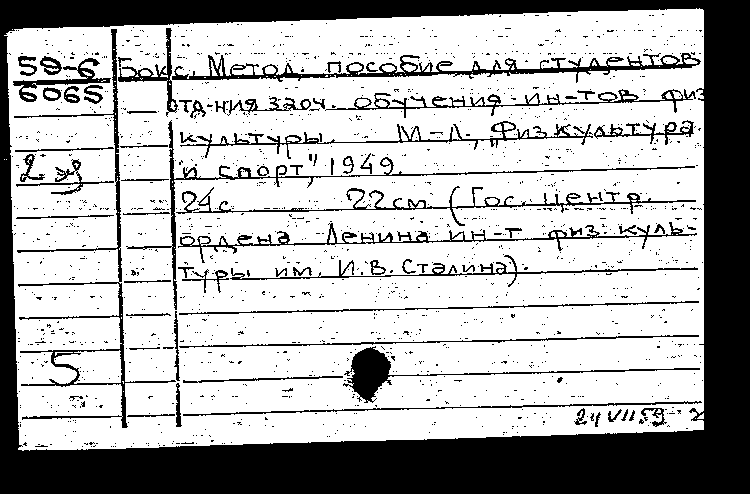 59-6 Бокс. Метод. пособие для студентов
6065 отд-ния заоч. обучения ин-тов физ
культуры. М-Л., „Физкультура
2 и спорт", 1949.
24с 22см (Гос. центр.
ордена Ленина ин-т физ. куль-
туры им. И.В. Сталина).
5
24 VII 59